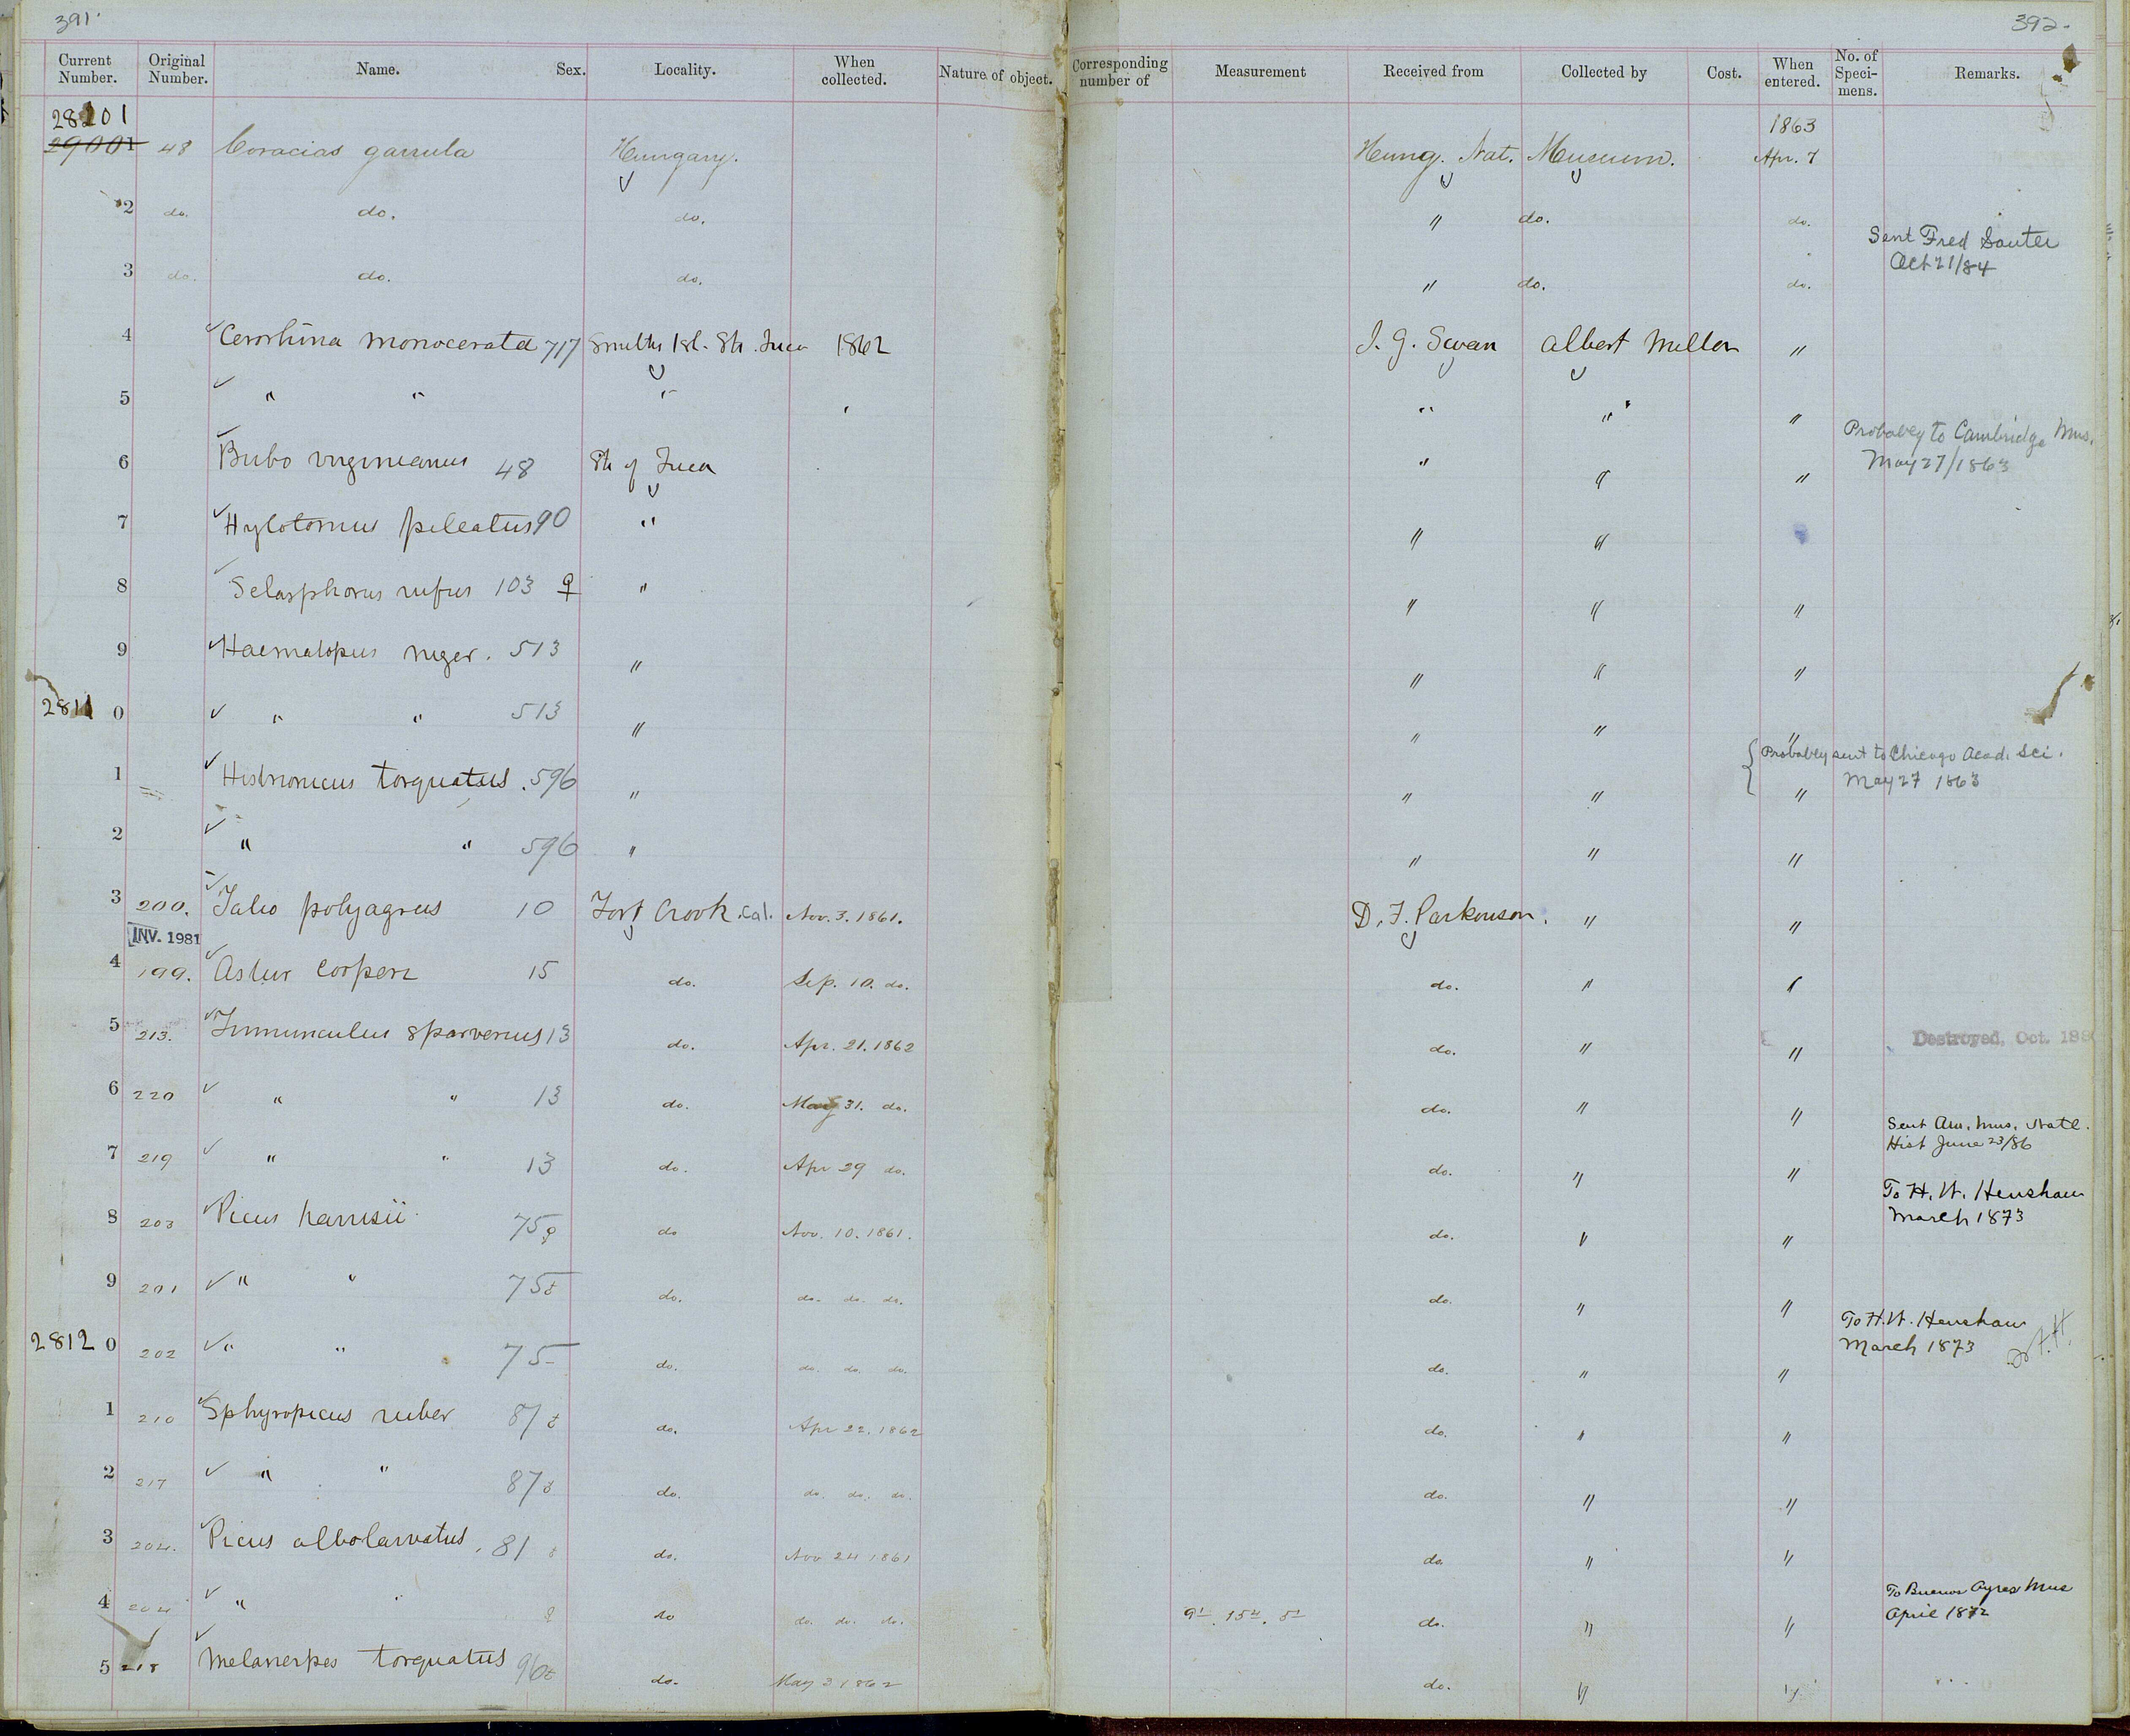 391.
392.
Current Number. Original Number. Name. Sex. Locality. When collected. Nature of object. Corresponding number of Measurement Received from Collected by Cost. When entered. No. of Speci-mens. Remarks.
28201 1863
29001 48 Coracias garrula Hungary. Hung. Nat. Museum. Apr. 7
2 do. do. do. " do. do.
Sent Fred Sauter
Oct 21/84
3 do. do. do. " do. do.
4 Cerorhina monocerata 717 Smiths Isl. Str. Fuca 1862 J. G. Swan Albert Miller "
5 " " " " " "
Probabley to Cambridge Mus.
May 27/1863
6 Bubo virginianus 48 Str of Fuca " " "
7 Hylotomus pileatus 90 " " "
8 Selasphorus rufus 103 ♀ " " " "
9 Haematopus niger. 513 " " " "
2811 0 " " 513 " " " "
Probabley sent to Chicago Acad. Sci.
May 27 1863
1 Histrionicus torquatus. 596 " " " "
2 " " 596 " " " "
3 200. Falco polyagrus 10 Fort Crook. Cal. Nov. 3. 1861. D. F. Parkinson. " "
INV. 1981
4 199. Astur cooperi 15 do. Sep. 10. do. do. " "
5 213. Tinnunculus sparverius 13 do. Apr. 21. 1862 do. " " Destroyed, Oct. 188
6 220 " " 13 do. May 31. do. do. " "
Sent Am. Mus. Natl.
Hist June 23/86
7 219 " " 13 do. Apr 29 do. do. " "
To H. W. Henshaw
March 1873
8 203 Picus harrisii 75 ♀ do Nov. 10. 1861. do. " "
9 201 " " 75 do. do. do. do. do. " "
To H. W. Henshaw
March 1873
2812 0 202 " " 75 do. do. do. do. do. " "
1 210 Sphyropicus ruber 87 do. Apr 22. 1862 do. " "
2 217 " " 87 do. do. do. do. do. " "
3 204. Picus albolarvatus. 81 do. Nov 24 1861 do. " "
To Buenos Ayres Mus
April 1872
4 204 " " do do. do. do. do. " "
5 218 Melanerpes torquatus 96 do. May 3 1862 do. " "